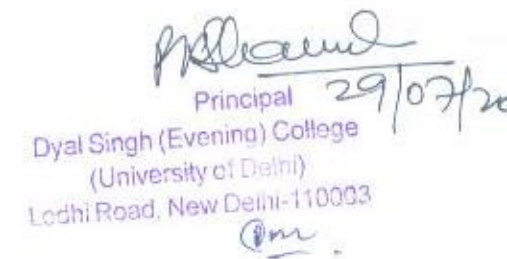 29/07/20
Principal
Dyal Singh (Evening) College
(University of Delhi)
Lodhi Road, New Delhi-110003